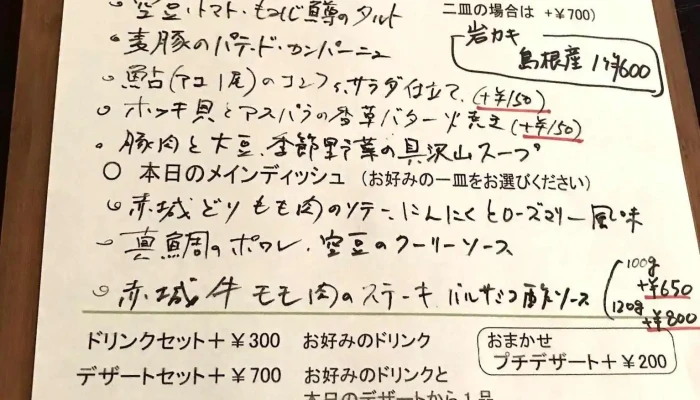 空豆・トマト・もつじ鱒のタルト
二皿の場合は +¥700)
麦豚のパテ・ド・カンパーニュ
岩カキ
島根産 1ケ¥600
鮎(アユ1尾)のコンフィ、サラダ仕立て (+¥150)
ホッキ貝とアスパラの香草バター火焼き (+¥150)
豚肉と大豆、季節野菜の具沢山スープ
○ 本日のメインディッシュ (お好みの一皿をお選びください)
赤城どりもも肉のソテー、にんにくとローズマリー風味
真鯛のポワレ、空豆のクーリーソース
赤城牛モモ肉のステーキ バルサミコ酢ソース
100g +¥650
120g +¥800
ドリンクセット+¥300 お好みのドリンク
おまかせ
プチデザート+¥200
デザートセット+¥700 お好みのドリンクと
本日のデザートから1品